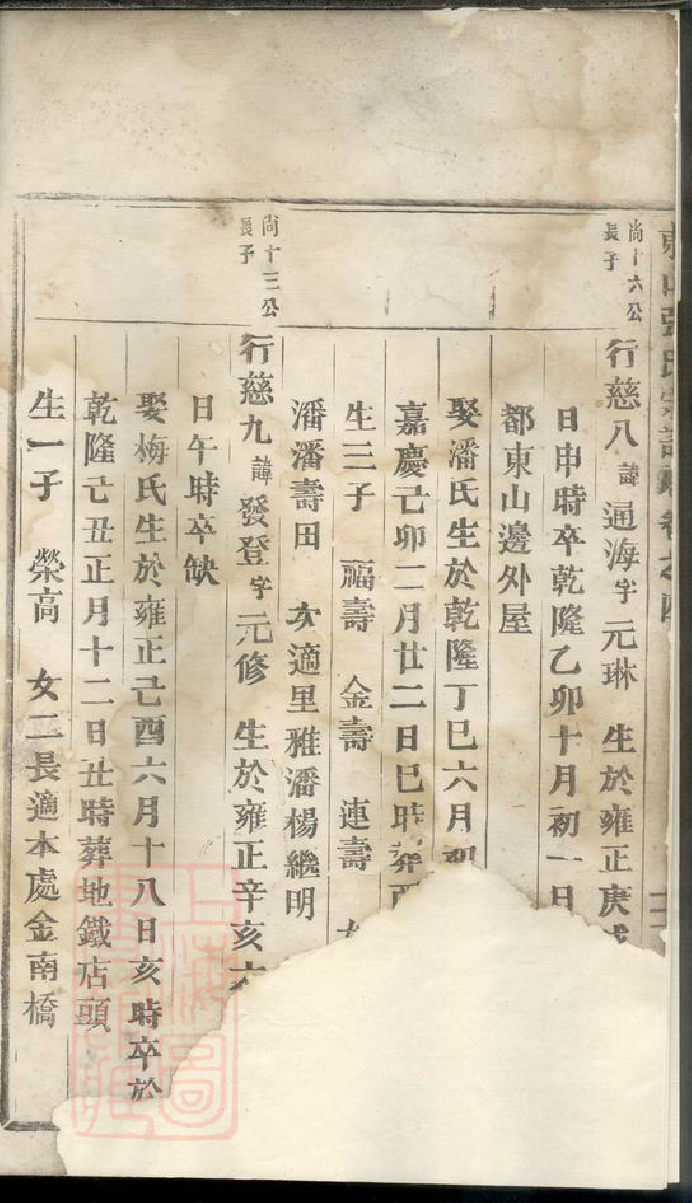 尚十六公長子
行慈八諱通海字元琳 生於雍正庚戌
日申時卒乾隆乙卯十月初一日
都東山邊外屋
娶潘氏生於乾隆丁巳六月初
嘉慶己卯二月廿二日巳時葬西
生三子 福壽 金壽 連壽 女
潘潘壽田 次適里雅潘楊繼明
尚十三公長子
行慈九諱發登字元修 生於雍正辛亥六
日午時卒缺
娶梅氏生於雍正己酉六月十八日亥時卒於
乾隆己丑正月十二日丑時葬地鐵店頭
生一子 榮高 女二長適本處金南橋
上海圖書館藏